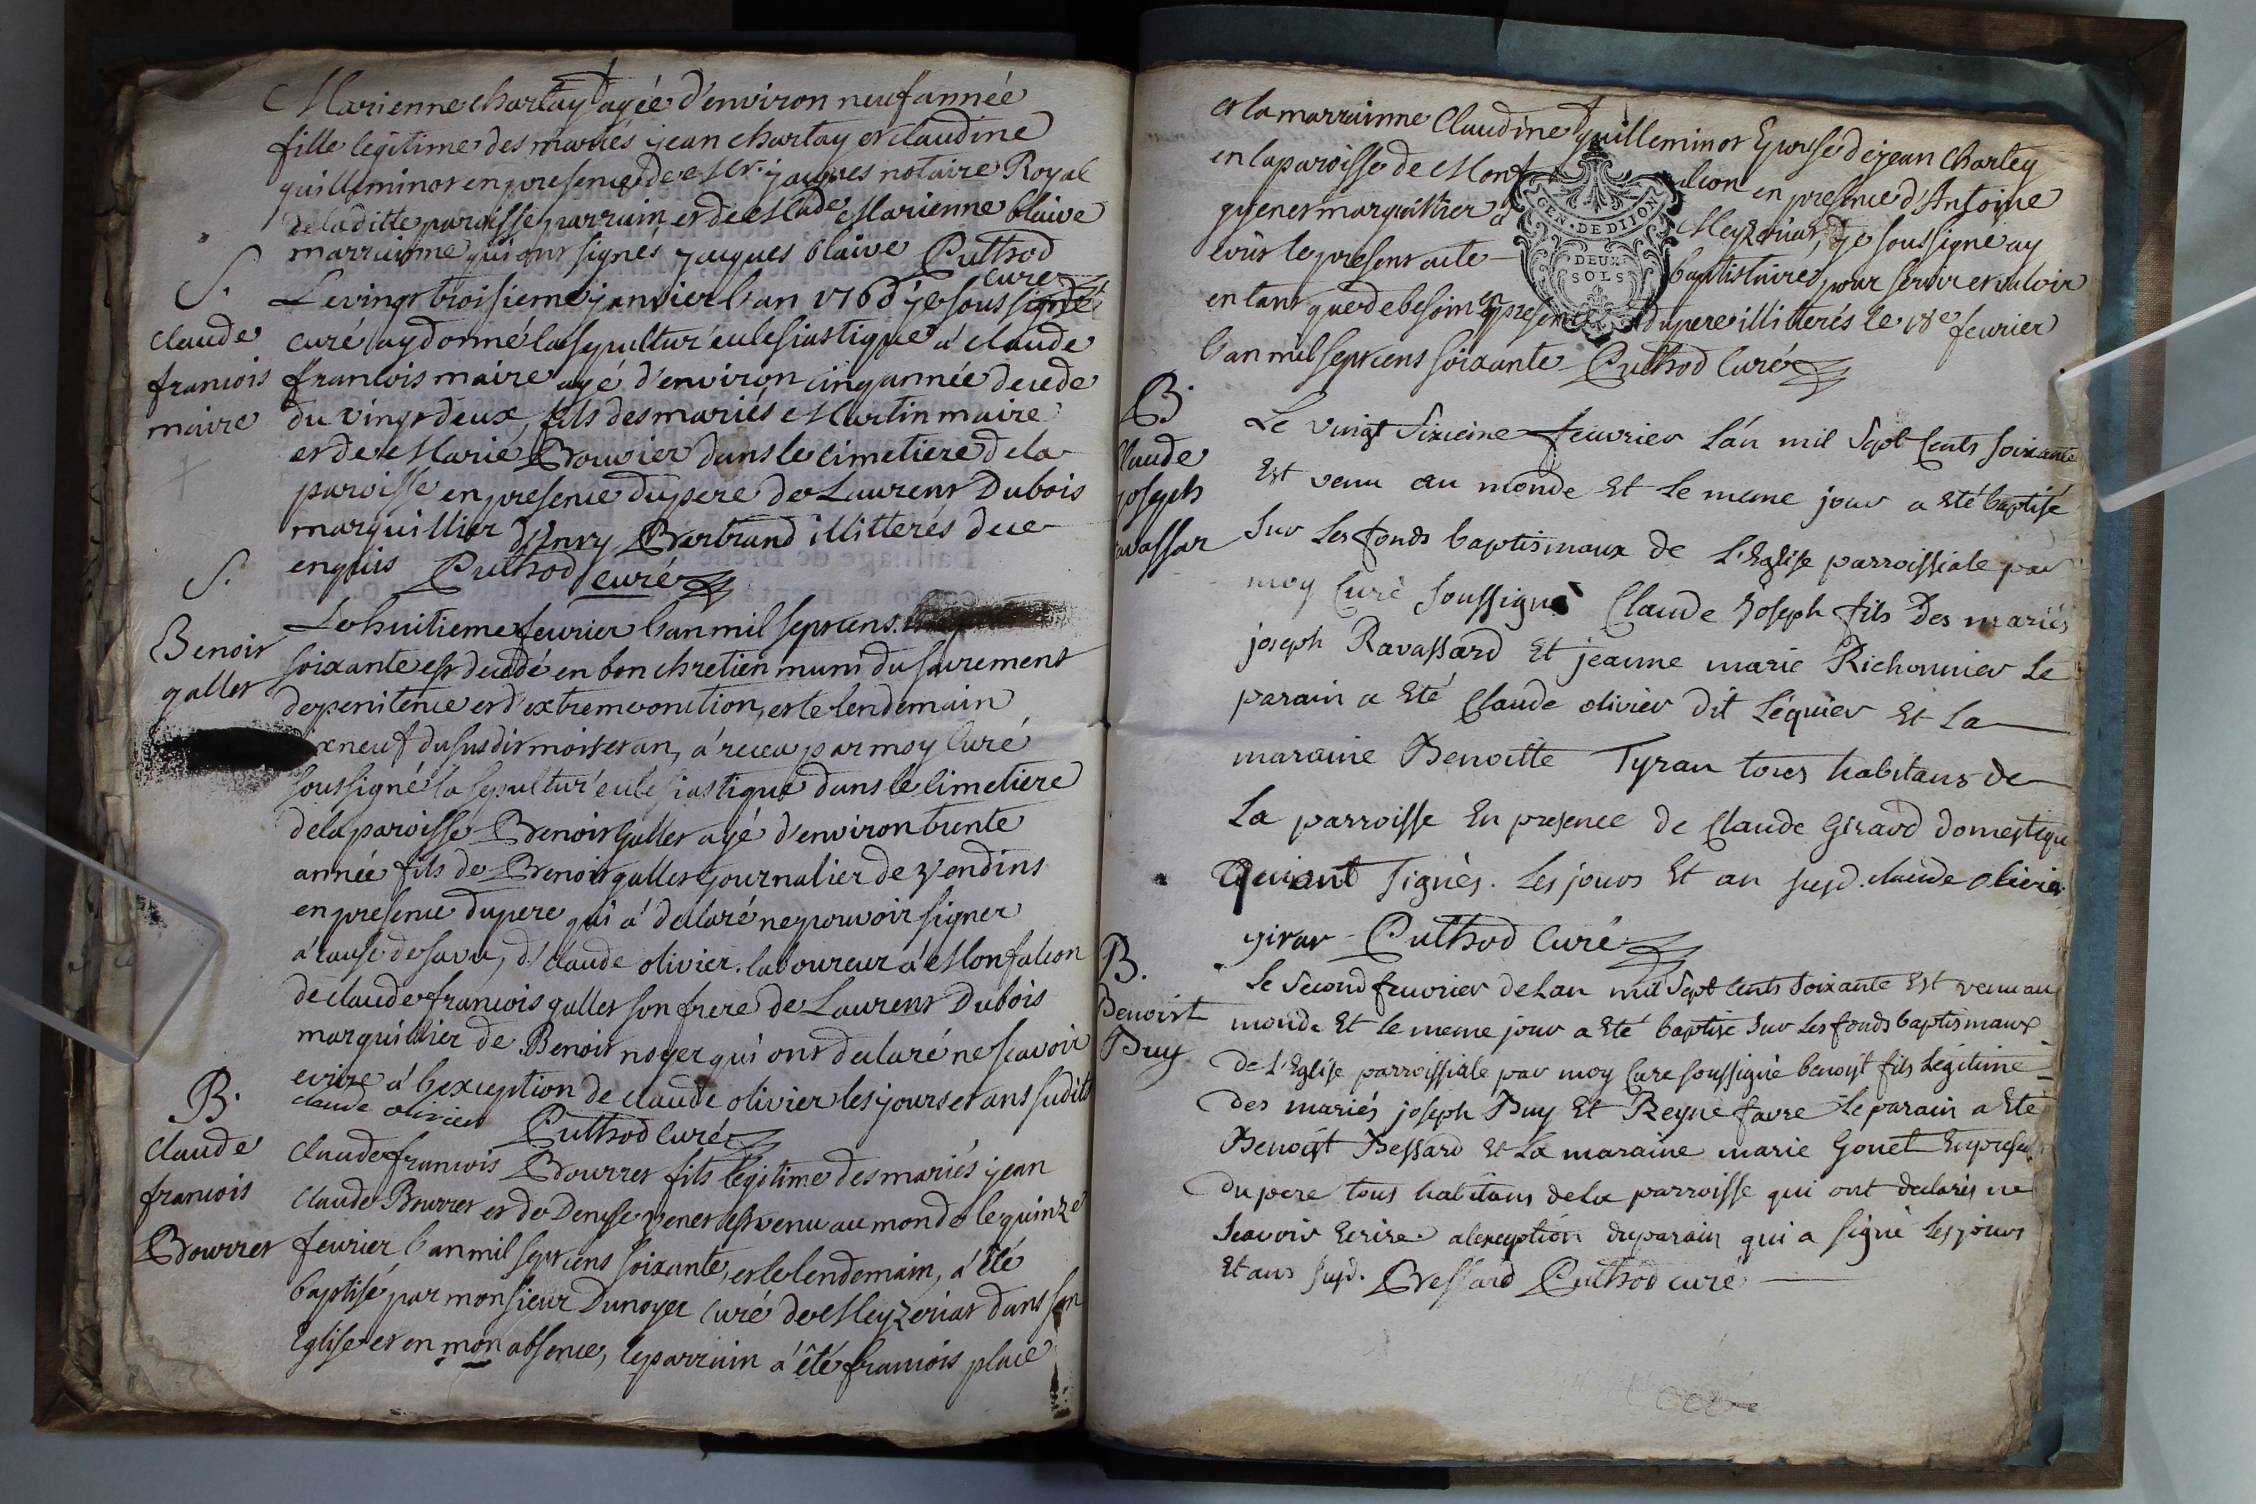 Marienne charlay agée d'environ neuf année
fille legitime des mariés jean charlay et claudine
guilleminot en presence de Mr. jacques notaire Royal
de laditte paroisse parrain et de Made Marienne blaive
marrainne qui ont signés jacques blaive Puthod
curé
S.
Le vingt troisieme janvier l'an 1760 je soussigné
claude
francois
maire
curé ay donné la sepultur' eclesiastique a' claude
francois maire agé d'environ cinq année decedé
du vingt deux, fils des mariés Martin maire
et de Marie Bouvier dans le cimetiere de la
paroisse en presence du pere de Laurent Dubois
marguillier d'henry Bertrand illitterés de ce
enquis Puthod curé
S.
Benoit
gallet
Le huitieme fevrier l'an mil sept cens
soixante est decedé en bon chretien muni du sacrement
de penitence et d'extremeonction, et le lendemain
neuf du susdit mois et an, a' receu par moy Curé
soussigné la sepultur' eclesiastique dans le cimetiere
de la paroisse Benoit Gallet agé d'environ trente
année fils de Benoit gallet journalier de
en presence du pere qui a' declaré ne pouvoir signer
a' cause de sa vu, d' claude olivier laboureur a' Monfalcon
de claude francois gallet son frere de Laurent Dubois
marguillier de Benoit noyer qui ont declaré ne scavoir
ecrire a' l'exception de claude olivier les jours et ans sudits
claude olivier Puthod curé
B.
claude
francois
Bourret
Claude francois Bourret fils legitime des mariés jean
claude Bourret et de Denyse est venu au monde le quinze
fevrier l'an mil sept cens soixante, et le lendemain, a' été
baptisé par monsieur Dunoyer Curé de Meyzeriat dans son
Eglise et en mon absence, le parrain a' été francois place
et la marrainne Claudine guilleminot Epouse de jean Charley
en la paroisse de Montfalcon en presence d'Antoine
marguillier a Meyzeriat, je soussigné ay
ecrit le present acte baptistaire, pour servir et valoir
en tant que de besoin en presence du pere illitterés le 18e fevrier
l'an mil sept cens soixante Puthod Curé
GEN. DE DIJON
DEUX
SOLS
B.
Claude
joseph
ravassar
Le vingt Sixieme feuvrier l'an mil Sept Cents soixante
Est venu au monde Et Le meme jour a Eté baptisé
Sur Les fonds baptismaux de L'Eglise parroissiale par
moy Curé Soussigné Claude Joseph fils Des mariés
joseph Ravassard Et jeanne marie Richonnier Le
parain a Eté Claude olivier Dit Lequier Et La
maraine Benoitte Tyran tous habitans de
La parroisse En presence de Claude Girard domestique
qui ont signés. Les jours Et an susd. claude olivier
girar Puthod Curé
B.
Benoist
Puy
Le Second feuvrier de Lan mil Sept Cents Soixante Est venu au
monde Et le meme jour a Eté baptisé Sur Les fonds baptismaux
de L'Eglise parroissiale par moy Curé soussigné benoist fils Legitime
Des mariés joseph Puy Et Reyne favre Le parain a Eté
Benoist Bessard Et La maraine marie Gonet En presence
du pere tous habitans de La parroisse qui ont declarés ne
Scavoir Ecrire a lexception du parain qui a signé Les jours
Et ans susd. Bressard Puthod curé